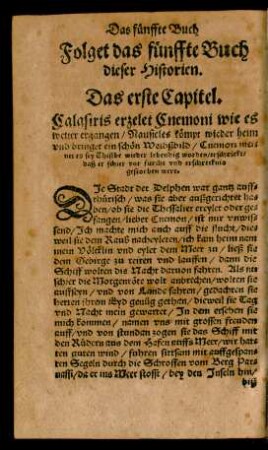 Das fünffte Buch
Folget das fünffte Buch
dieser Historien.
Das erste Capitel.
Calasiris erzelet Cnemoni wie es
weiter ergangen / Nausicles kömpt wieder heim
vnd bringet ein schön Weibsbild / Cnemon mei
net es sey Thisbe wieder lebendig worden / erschrickt /
daß er schier vor furcht vnd erschrecknis
gestorben were.
DIe Stadt der Delphen war gantz auff-
rhürisch / was sie aber außgerichtet ha-
den / ob sie die Thessalier ereylet oder ge-
fangen / lieber Cnemon / ist mir vnwis-
send / Ich machte mich auch auff die flucht / die-
weil sie dem Raub nacheyleten / ich kam heim nam
mein Völcklin vnd eylet dem Meer zu /
dem Gebirge zu reiten vnd lauffen / dann die
Schiff wolten die Nacht daruon fahren. Als nu
schier die Morgenröte wolt anbrechen / wolten sie
aufflösen / vnd von Lande fahren / gedachten sie
hetten ihrem Eyd genüg gethan / dieweil sie Tag
vnd Nacht mein gewartet / In dem ersehen sie
mich kommen / namen vns mit grossen freuden
auff / vnd von stundan zogen sie das Schiff mit
den Rüdern aus dem Hafen auffs Meer / wir hat-
ten guten wind / fuhren stersam mit auffgespan-
ten Segeln durch die Schroffen vom Berg Par-
nassi / da er ins Meer stosst / bey den Inseln hin /